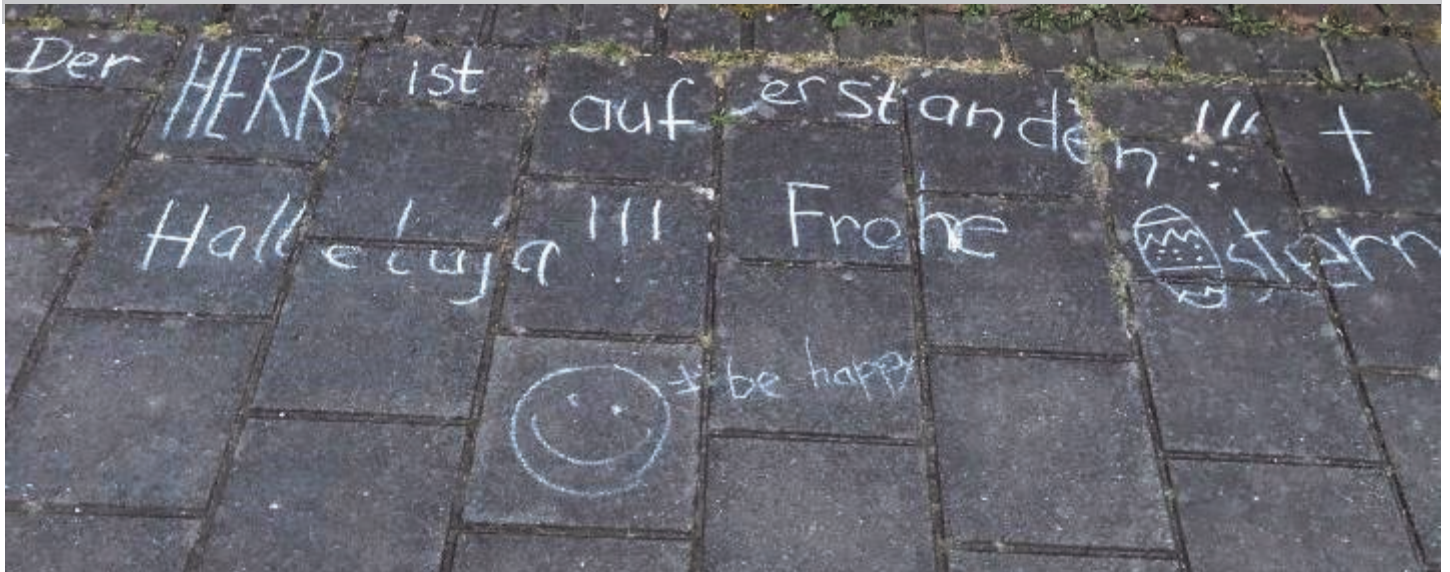 Der HERR ist auferstanden!!! †
Halleluja!!! Frohe Ostern
be happy